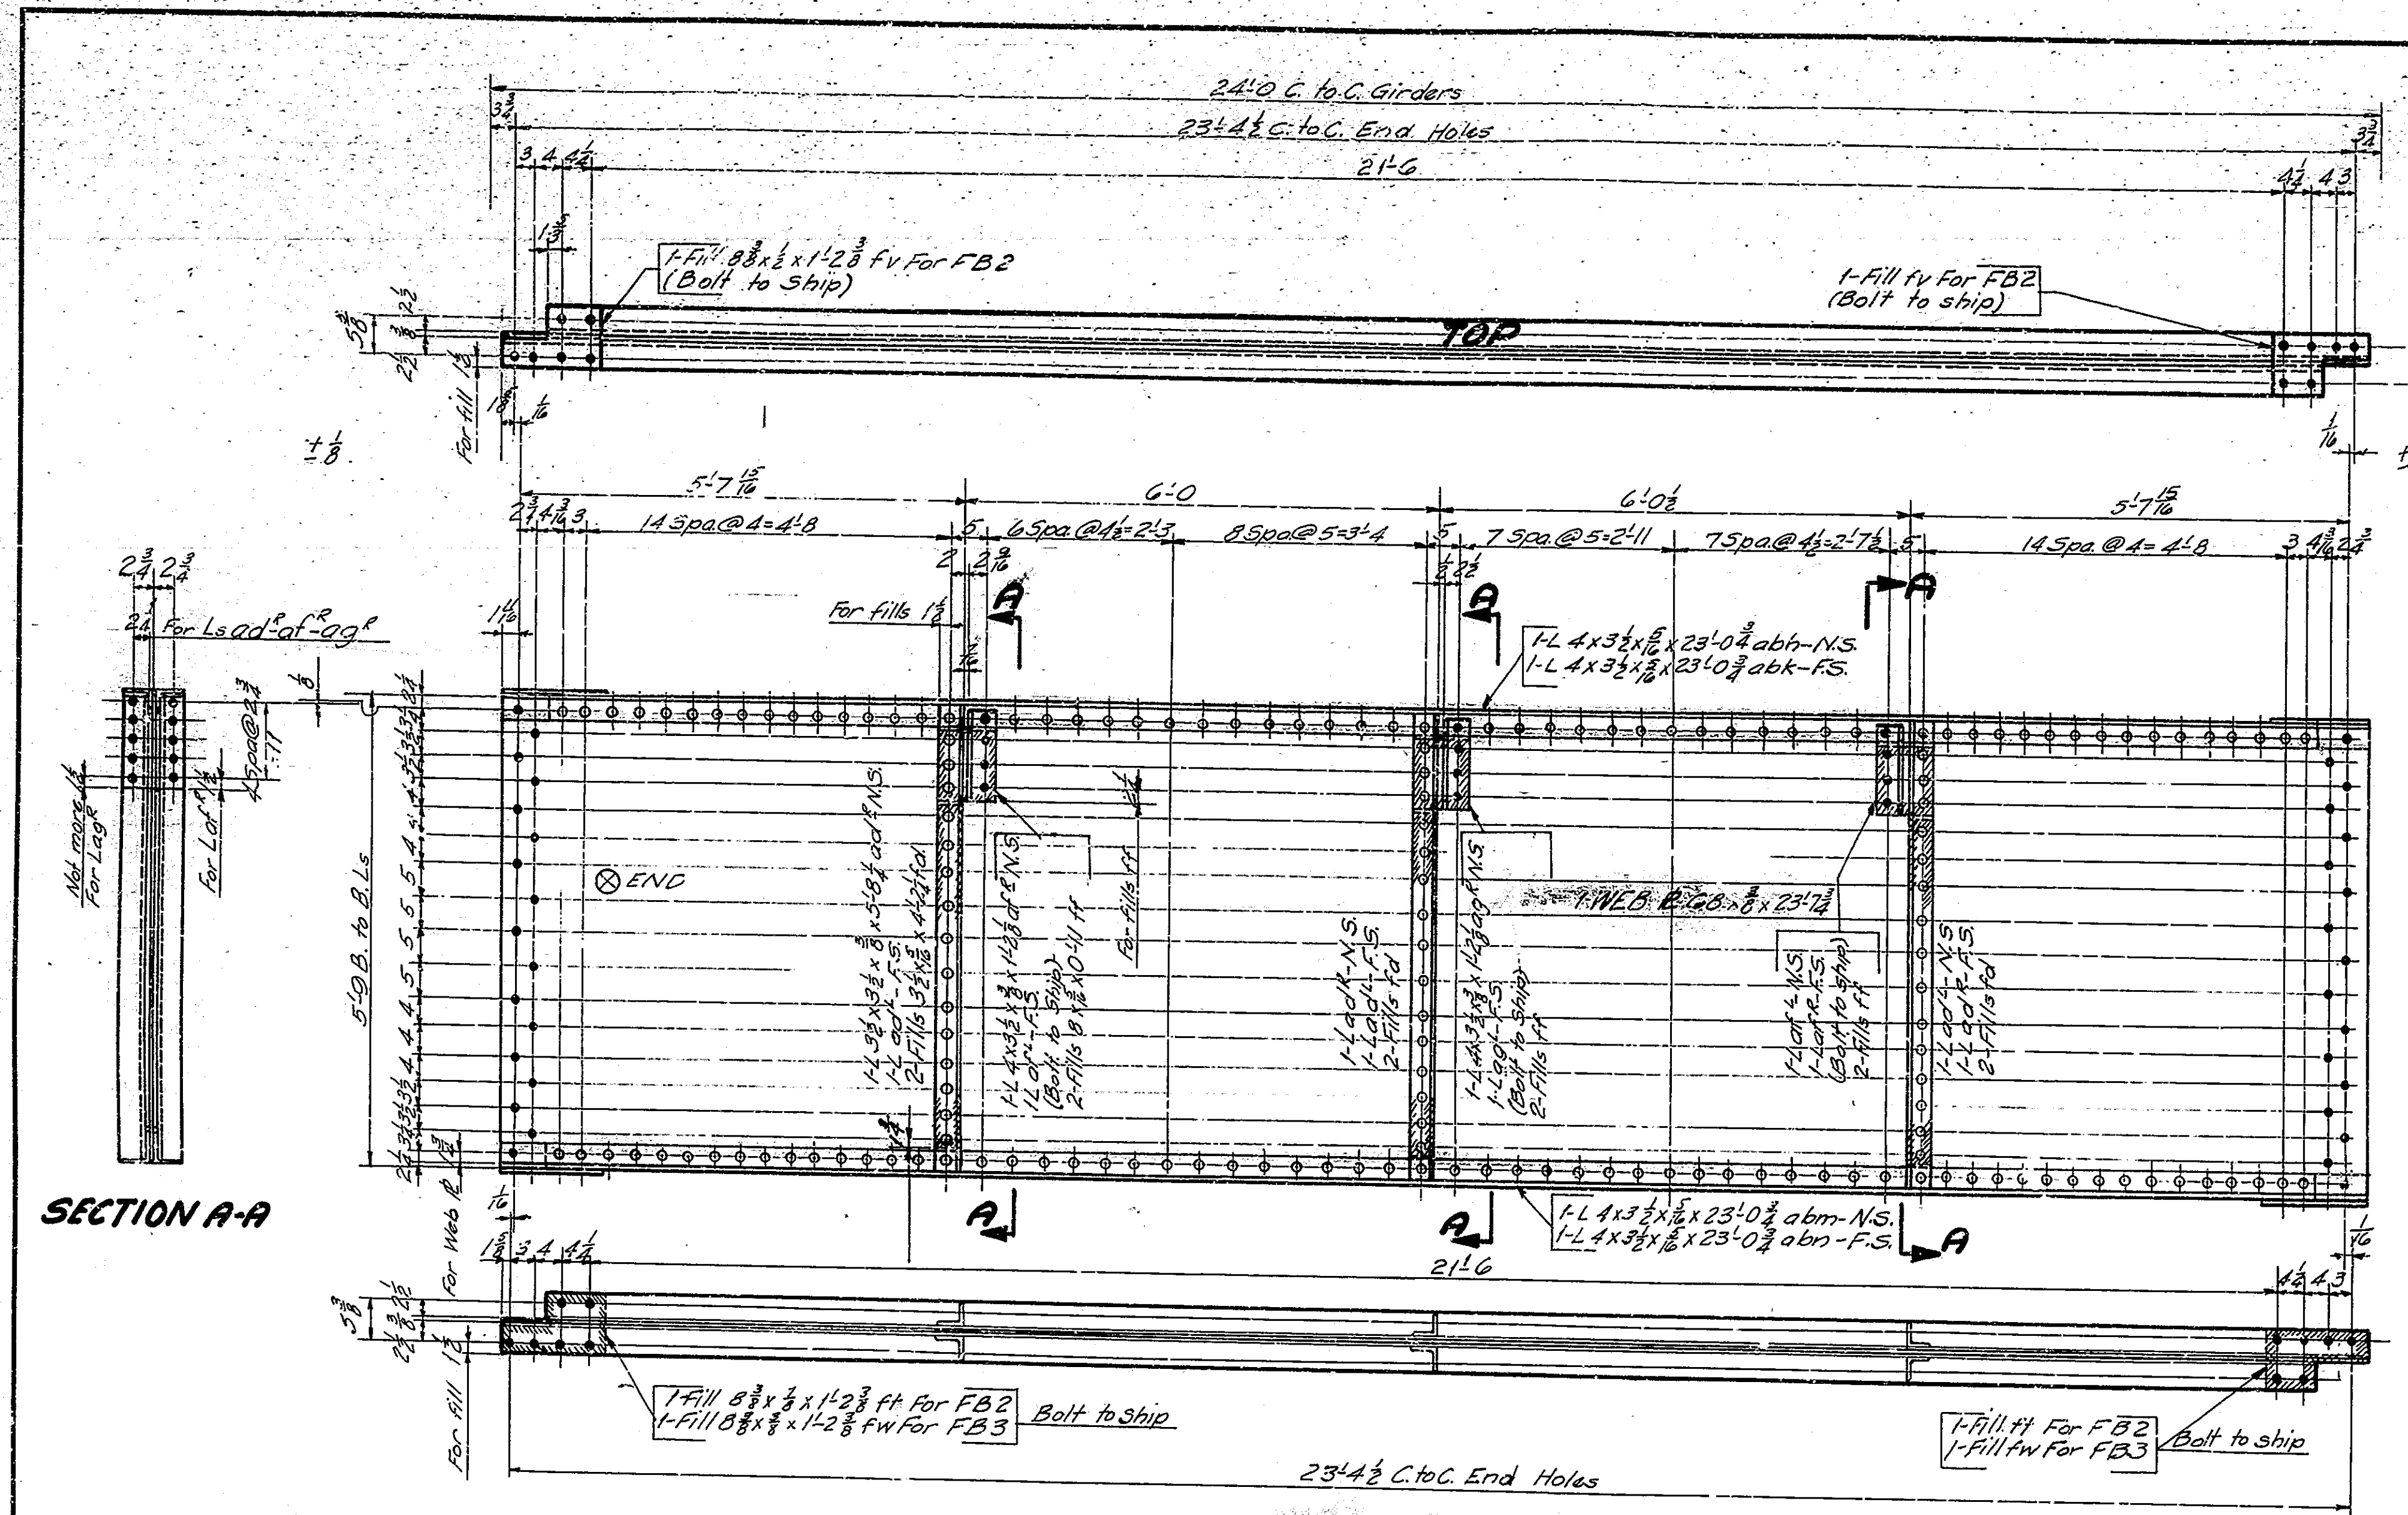 24'-0 C. to C. Girders
23'-4 1/2 C. to C. End Holes
21'-6
3 3/4
3 4 4 1/4
4 1/4 4 3
3 3/4
1-Fill 8 3/8 x 1/2 x 1'-2 3/8 fv For FB2
(Bolt to Ship)
1-Fill fv For FB2
(Bolt to ship)
TOP
5 3/8
2 1/2 3/8 2 1/2
For fill 1 1/2
1/16
1/16
± 1/8
5'-7 15/16
6'-0
6'-0 1/2
5'-7 15/16
2 3/4 4 3/16 3
14 Spa. @ 4 = 4'-8
5
6 Spa. @ 4 1/2 = 2'-3
8 Spa. @ 5 = 3'-4
5
7 Spa. @ 5 = 2'-11
7 Spa. @ 4 1/2 = 2'-7 1/2
5
14 Spa. @ 4 = 4'-8
3 4 3/16 2 3/4
2 2 9/16
1/2 2 1/2
A
A
A
For fills 1 1/2
1 11/16
2 3/4 2 3/4
2 1/4 For Ls ad R-af R-ag R
1/8
4 Spa @ 2 3/4
= 11
Not more 1 1/2
For Lag R
For Laf R 1 1/2
5'-9 B. to B. Ls
1-L 4 x 3 1/2 x 5/16 x 23'-0 3/4 abh-N.S.
1-L 4 x 3 1/2 x 5/16 x 23'-0 3/4 abk-F.S.
⊗ END
1-L 3 1/2 x 3 1/2 x 3/8 x 5'-8 1/4 ad R N.S.
1-L ad L-F.S.
2-Fills 3 1/2 x 5/16 x 4'-2 1/4 fd
1-L 4 x 3 1/2 x 3/8 x 1'-2 1/8 af R N.S.
1L af L-F.S.
(Bolt to Ship)
2-Fills 8 x 5/16 x 0'-11 ff
For fills ff
2 1/2
1-Lad R-N.S.
1-Lad L-F.S.
2-Fills fd
1-L 4 x 3 1/2 x 3/8 x 1'-2 1/8 ag R N.S.
1-Lag L-F.S.
(Bolt to Ship)
2-Fills ff
1-WEB PL 68 x 3/8 x 23'-7 3/4
1-Laf L N.S.
1-Laf R-F.S.
(Bolt to Ship)
2-Fills ff
1-Lad L-N.S.
1-Lad R-F.S.
2-Fills fd
SECTION A-A
For Web PL 1 3/4
1-L 4 x 3 1/2 x 5/16 x 23'-0 3/4 abm-N.S.
1-L 4 x 3 1/2 x 5/16 x 23'-0 3/4 abn-F.S.
A
A
A
1/16
1 5/8 3 4 4 1/4
21'-6
4 1/4 4 3
1/16
5 3/8
2 1/2 3/8 2 1/2
For fill 1 1/2
1-Fill 8 3/8 x 1/8 x 1'-2 3/8 ft For FB2
1-Fill 8 3/8 x 3/8 x 1'-2 3/8 fw For FB3
Bolt to ship
1-Fill ft For FB2
1-Fill fw For FB3
Bolt to ship
23'-4 1/2 C. to C. End Holes